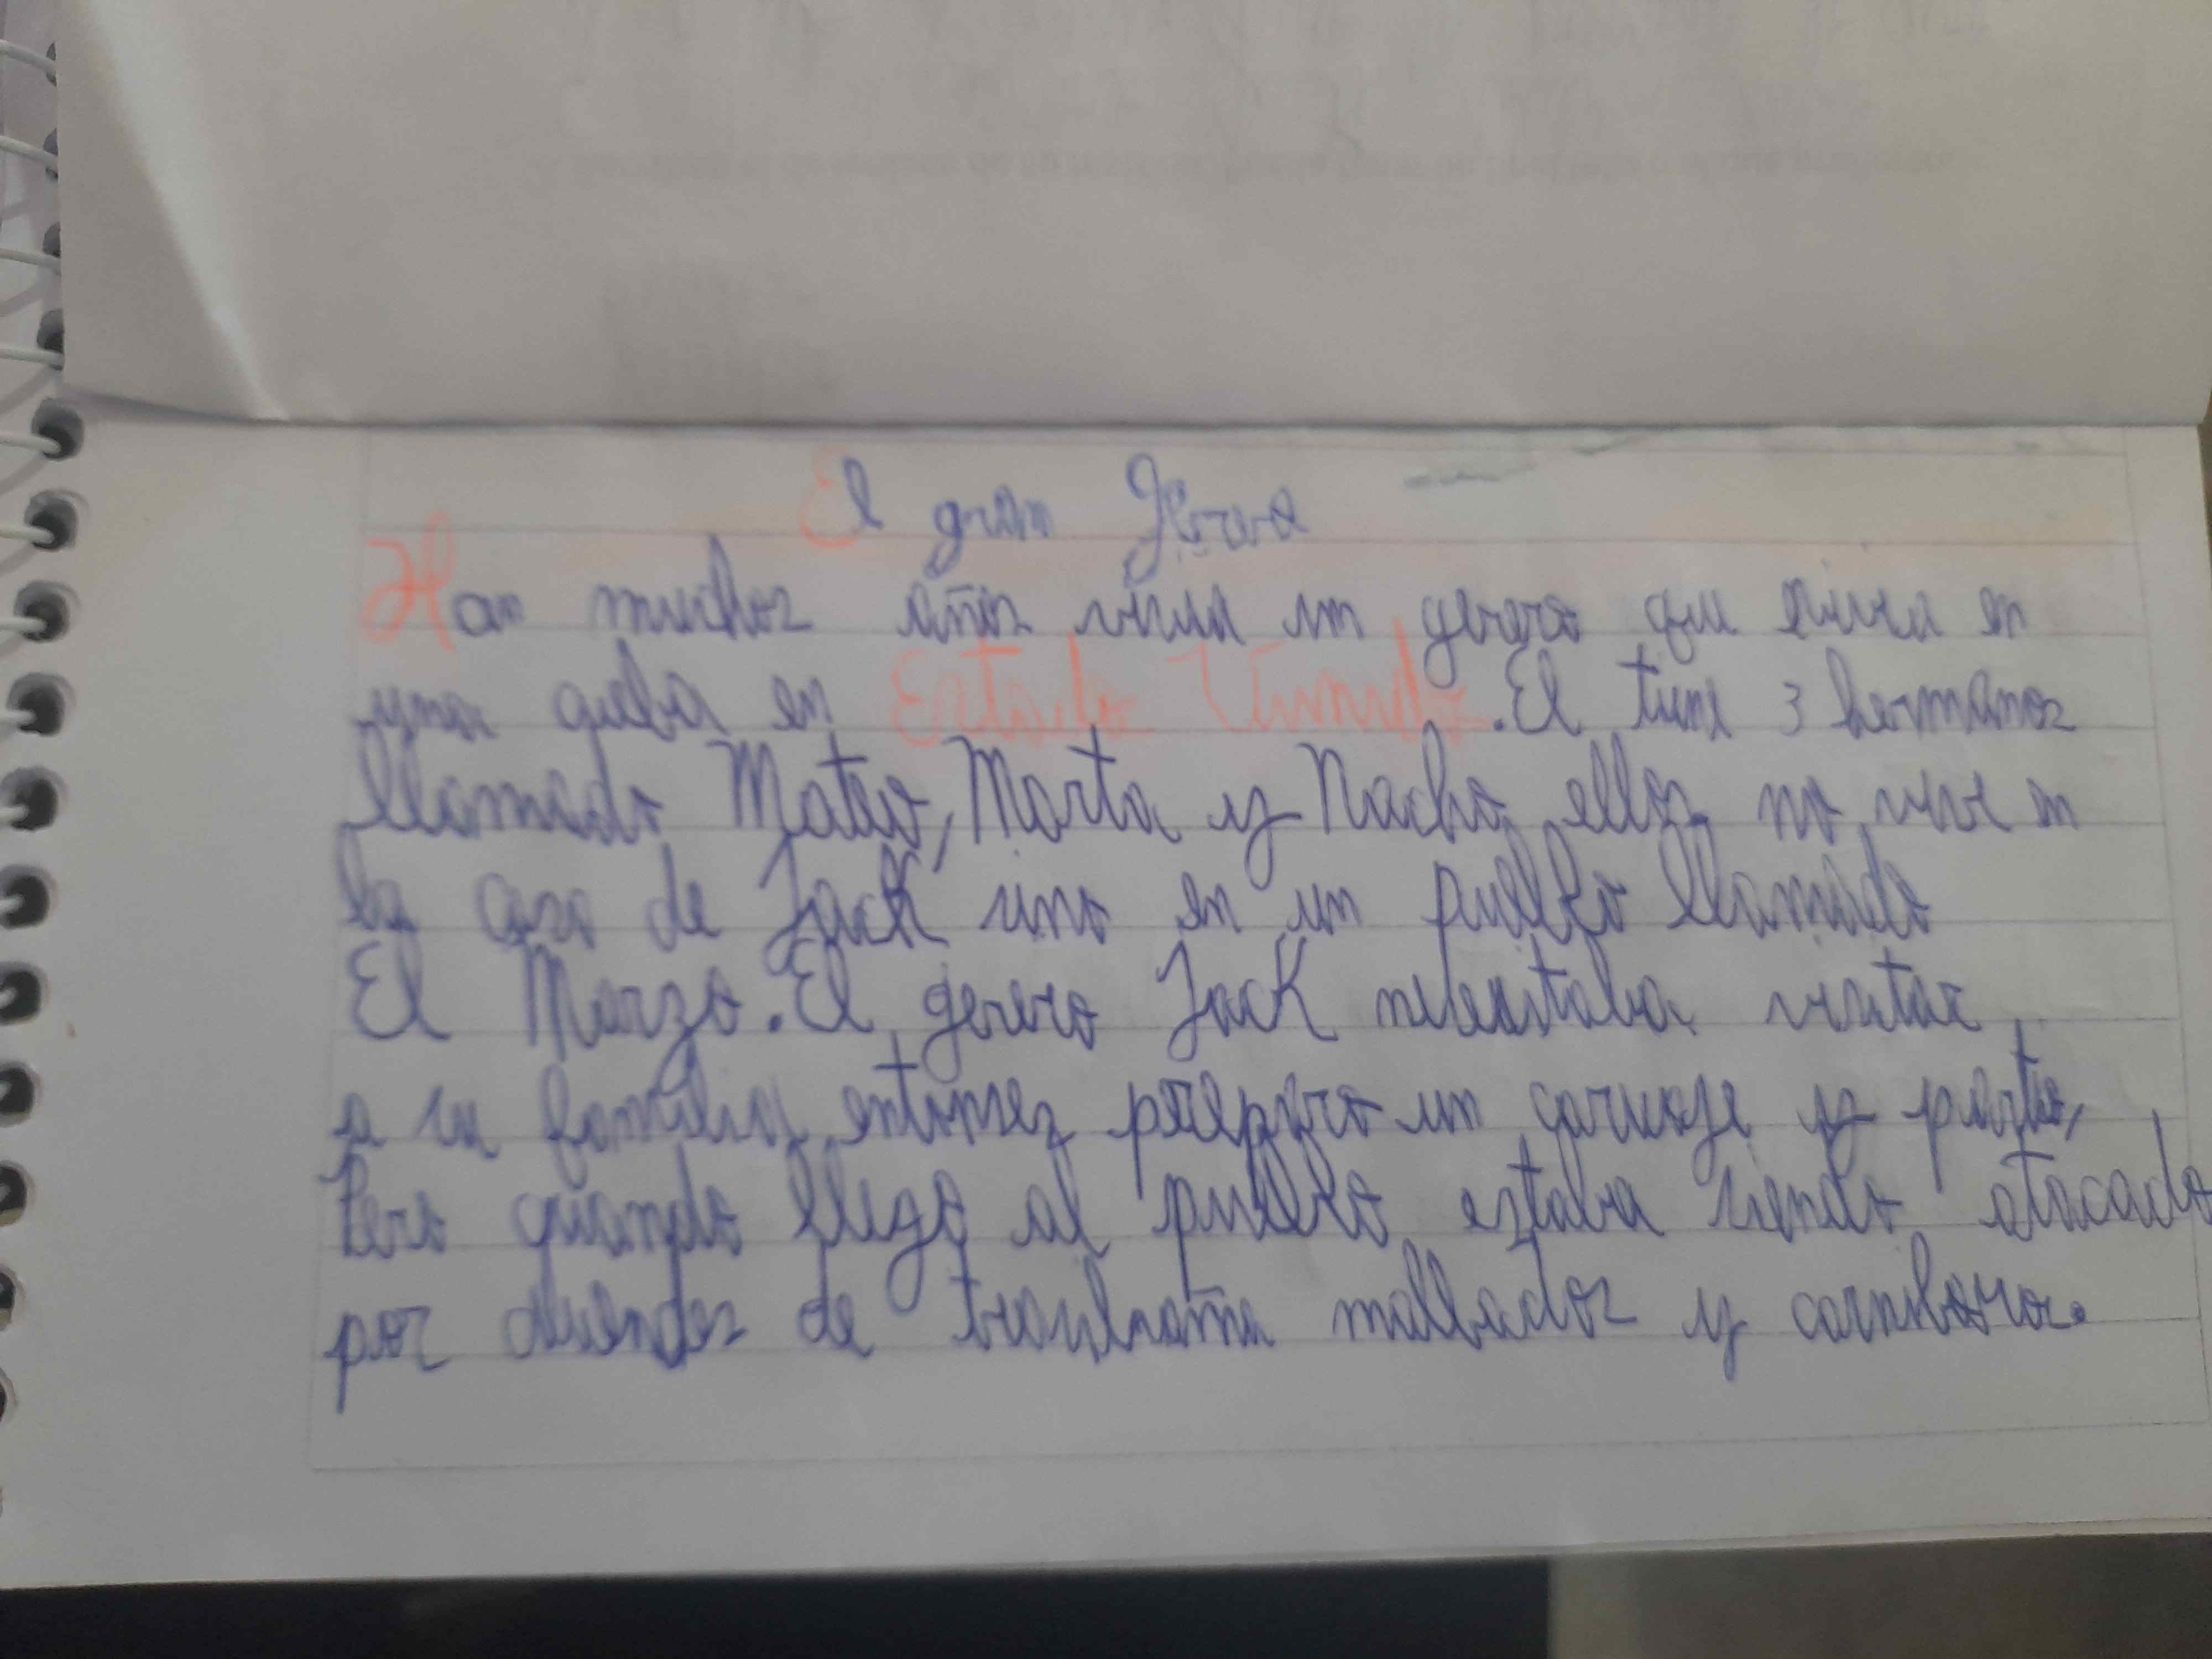 El gran Jerero
Han muchos años vivia un gerero que vivia en
una queba en Estado Unido. El tiene 3 hermanos
llamado Mateo, Marta y Nacho ellos no vivir en
la casa de Jack sino en un pueblo llamado
El Marzo. El gerero Jack nesesitaba visitar
a su familia, entonses preparo un caruaje y partio,
Pero cuando llego al pueblo estaba siendo atacado
por duendes de malbados y carniboros.